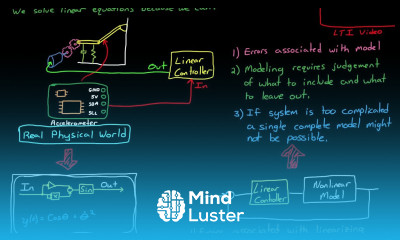 We solve linear equations because we can
LTI Video
Out
Linear
Controller
In
GND
5V
SDA
SLL
Accelerometer
Real Physical World
1) Errors associated with model
2) Modeling requires judgement
of what to include and what
to leave out.
3) If system is too complicated
a single complete model might
not be possible.
In
Sin
Out
Linear
Controller
Nonlinear
Model
Mind
Luster
associated with